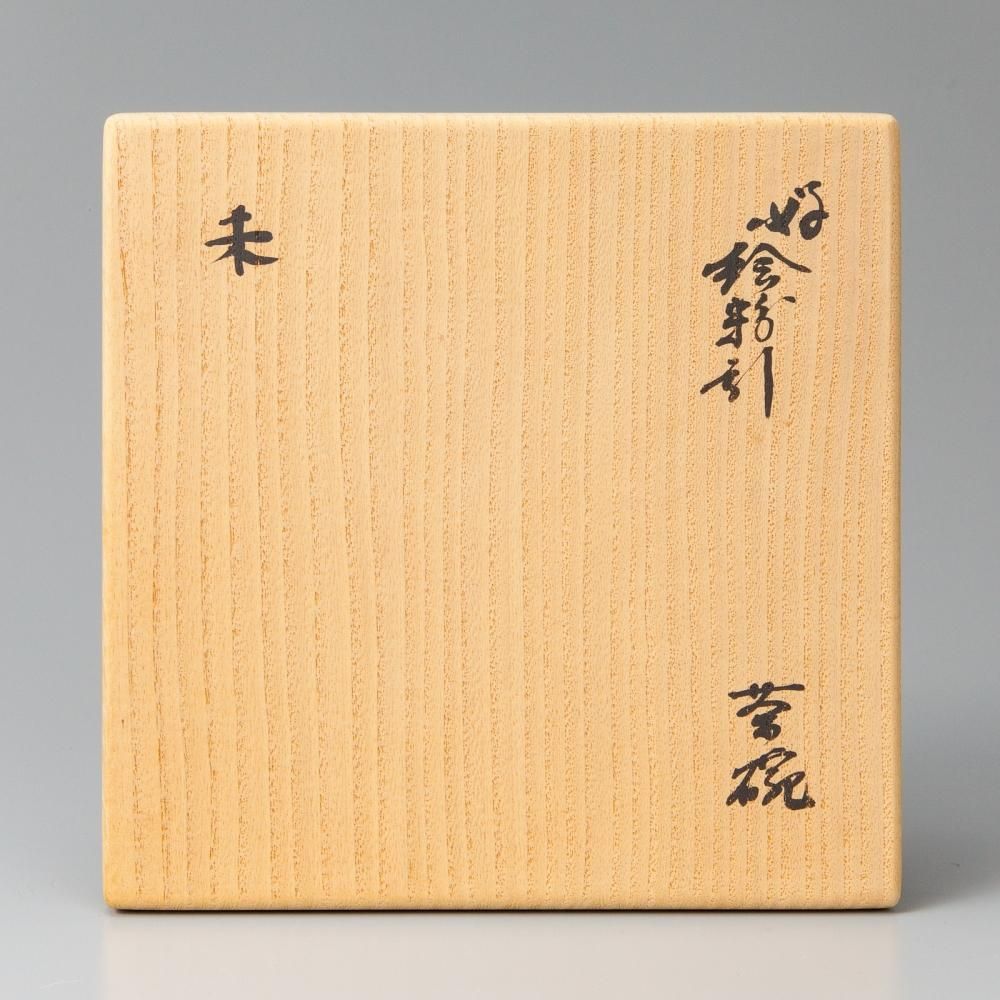 好
絵粉引
茶碗
未